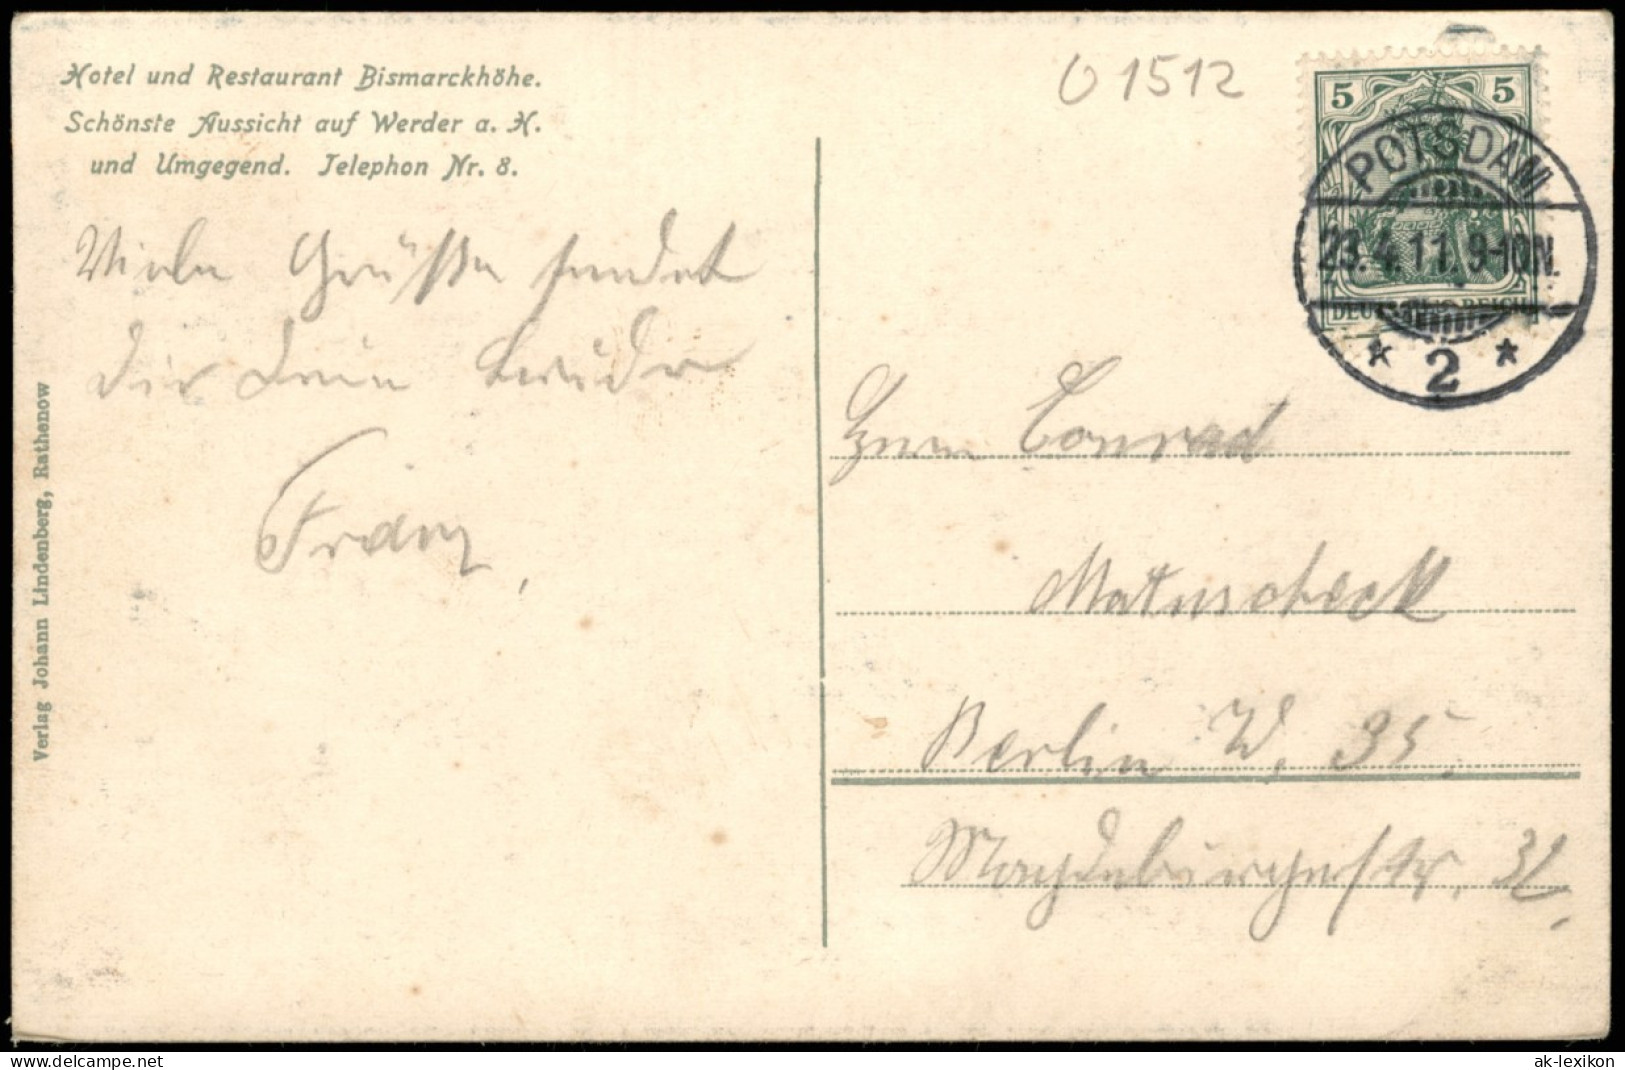 Hotel und Restaurant Bismarckhöhe.
Schönste Aussicht auf Werder a. H.
und Umgegend. Telephon Nr. 8.
Viele Grüße sendet
dir dein bruder
Franz,
Verlag Johann Lindenberg, Rathenow
01512
5 5
DEUTSCHES REICH
POTSDAM
23.4.11.9-10N.
* 2 *
Conrad
Matuscheck
Berlin W. 35.
Magdeburgerstr.
www.delcampe.net
ak-lexikon